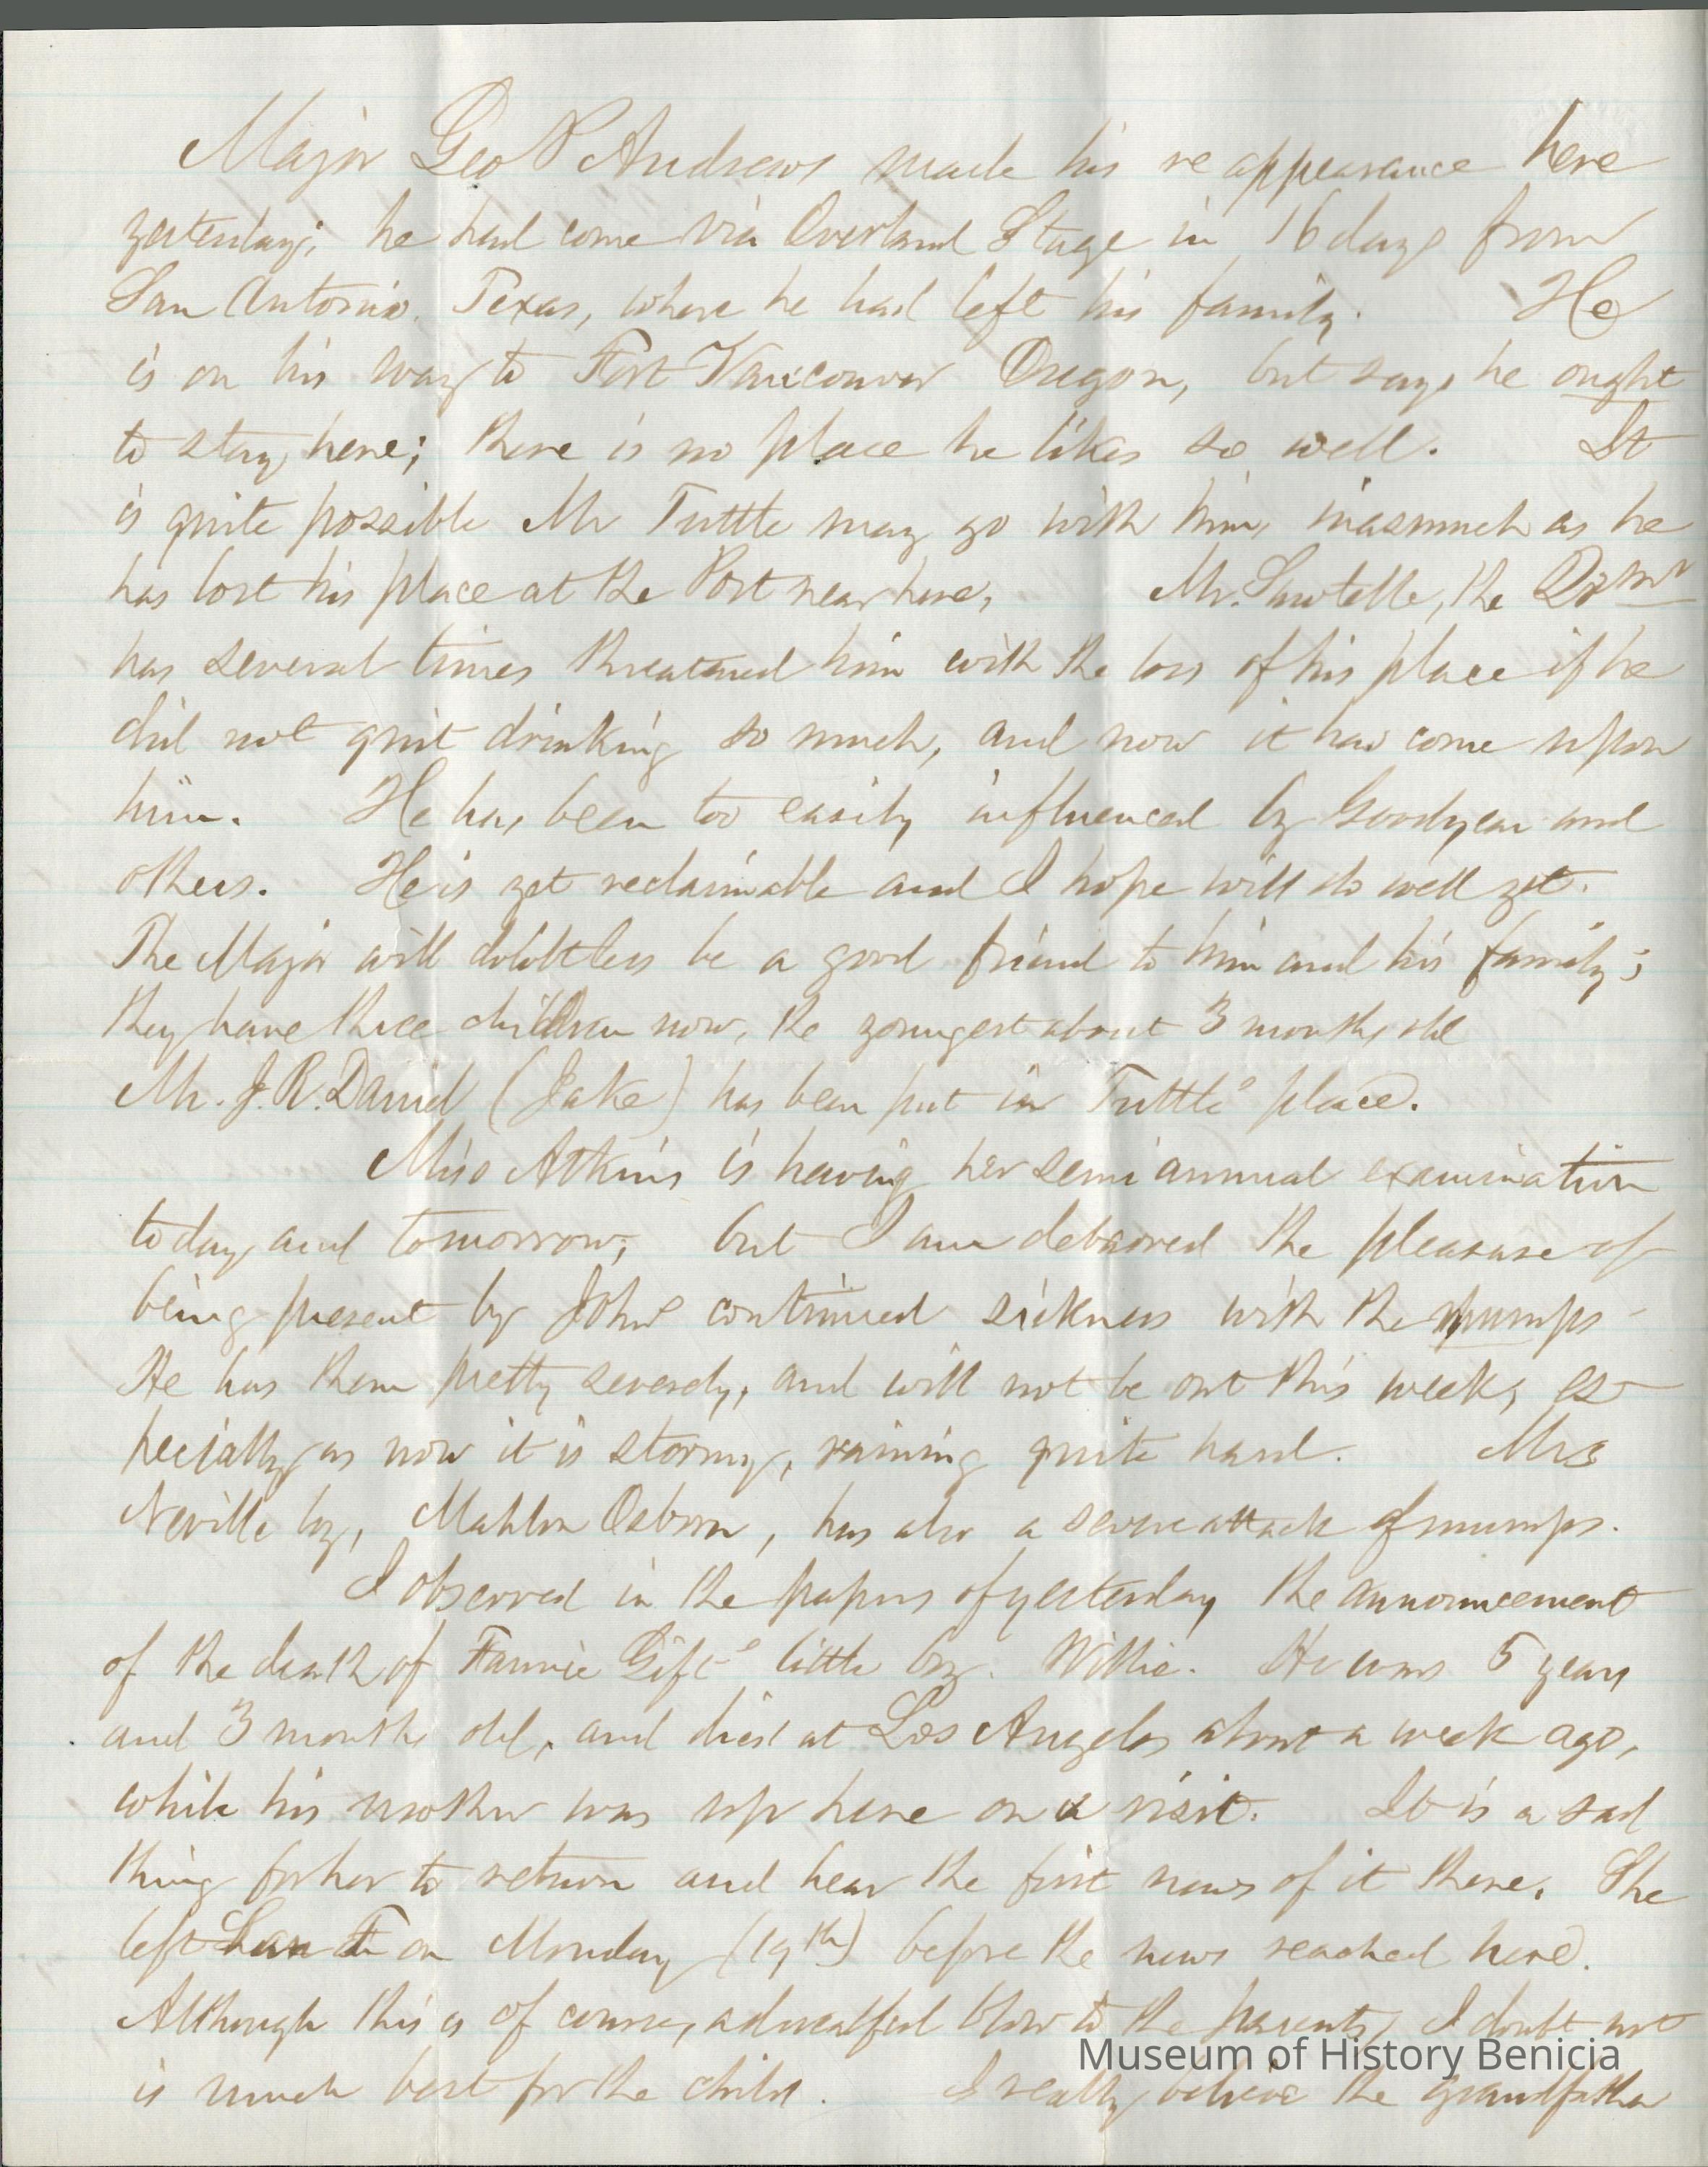 Major Geo P Andrews made his re appearance here
yesterday; he had come via Overland Stage in 16 days from
San Antonio. Texas, where he had left his family. He
is on his way to Fort Vancouver Oregon, but says he ought
to stay here; there is no place he likes so well. It
is quite possible Mr Tuttle may go with him, inasmuch as he
has lost his place at the Post near here, Mr. Sawtelle, the Qr Mr
has several times threatened him with the loss of his place if he
did not quit drinking so much, and now it has come upon
him. He has been too easily influenced by Goodyear and
others. He is yet reclaimable and I hope will do well yet.
The Major will doubtless be a good friend to him and his family;
they have three children now, the youngest about 3 months old
Mr. J. R. David (Jake) has been put in Tuttle's place.
Miss Atkins is having her semi annual examination
to day and tomorrow; but I am debarred the pleasure of
being present by Johns continued sickness with the mumps -
He has them pretty severely, and will not be out this week, es-
pecially as now it is stormy, raining quite hard. Mrs
Neville boy, Mahlon Osborn, has also a severe attack of mumps.
I observed in the papers of yesterday the announcement
of the death of Fannie Gift's little boy. Willie. He was 5 years
and 3 months old, and died at Los Angeles about a week ago,
while his mother was up here on a visit. It is a sad
thing for her to return and hear the first news of it there. She
left San F on Monday (19th) before the news reached here.
Although this is of course, a dreadful blow to the parents, I doubt not
is much best for the child. I really believe the grandfather
Museum of History Benicia